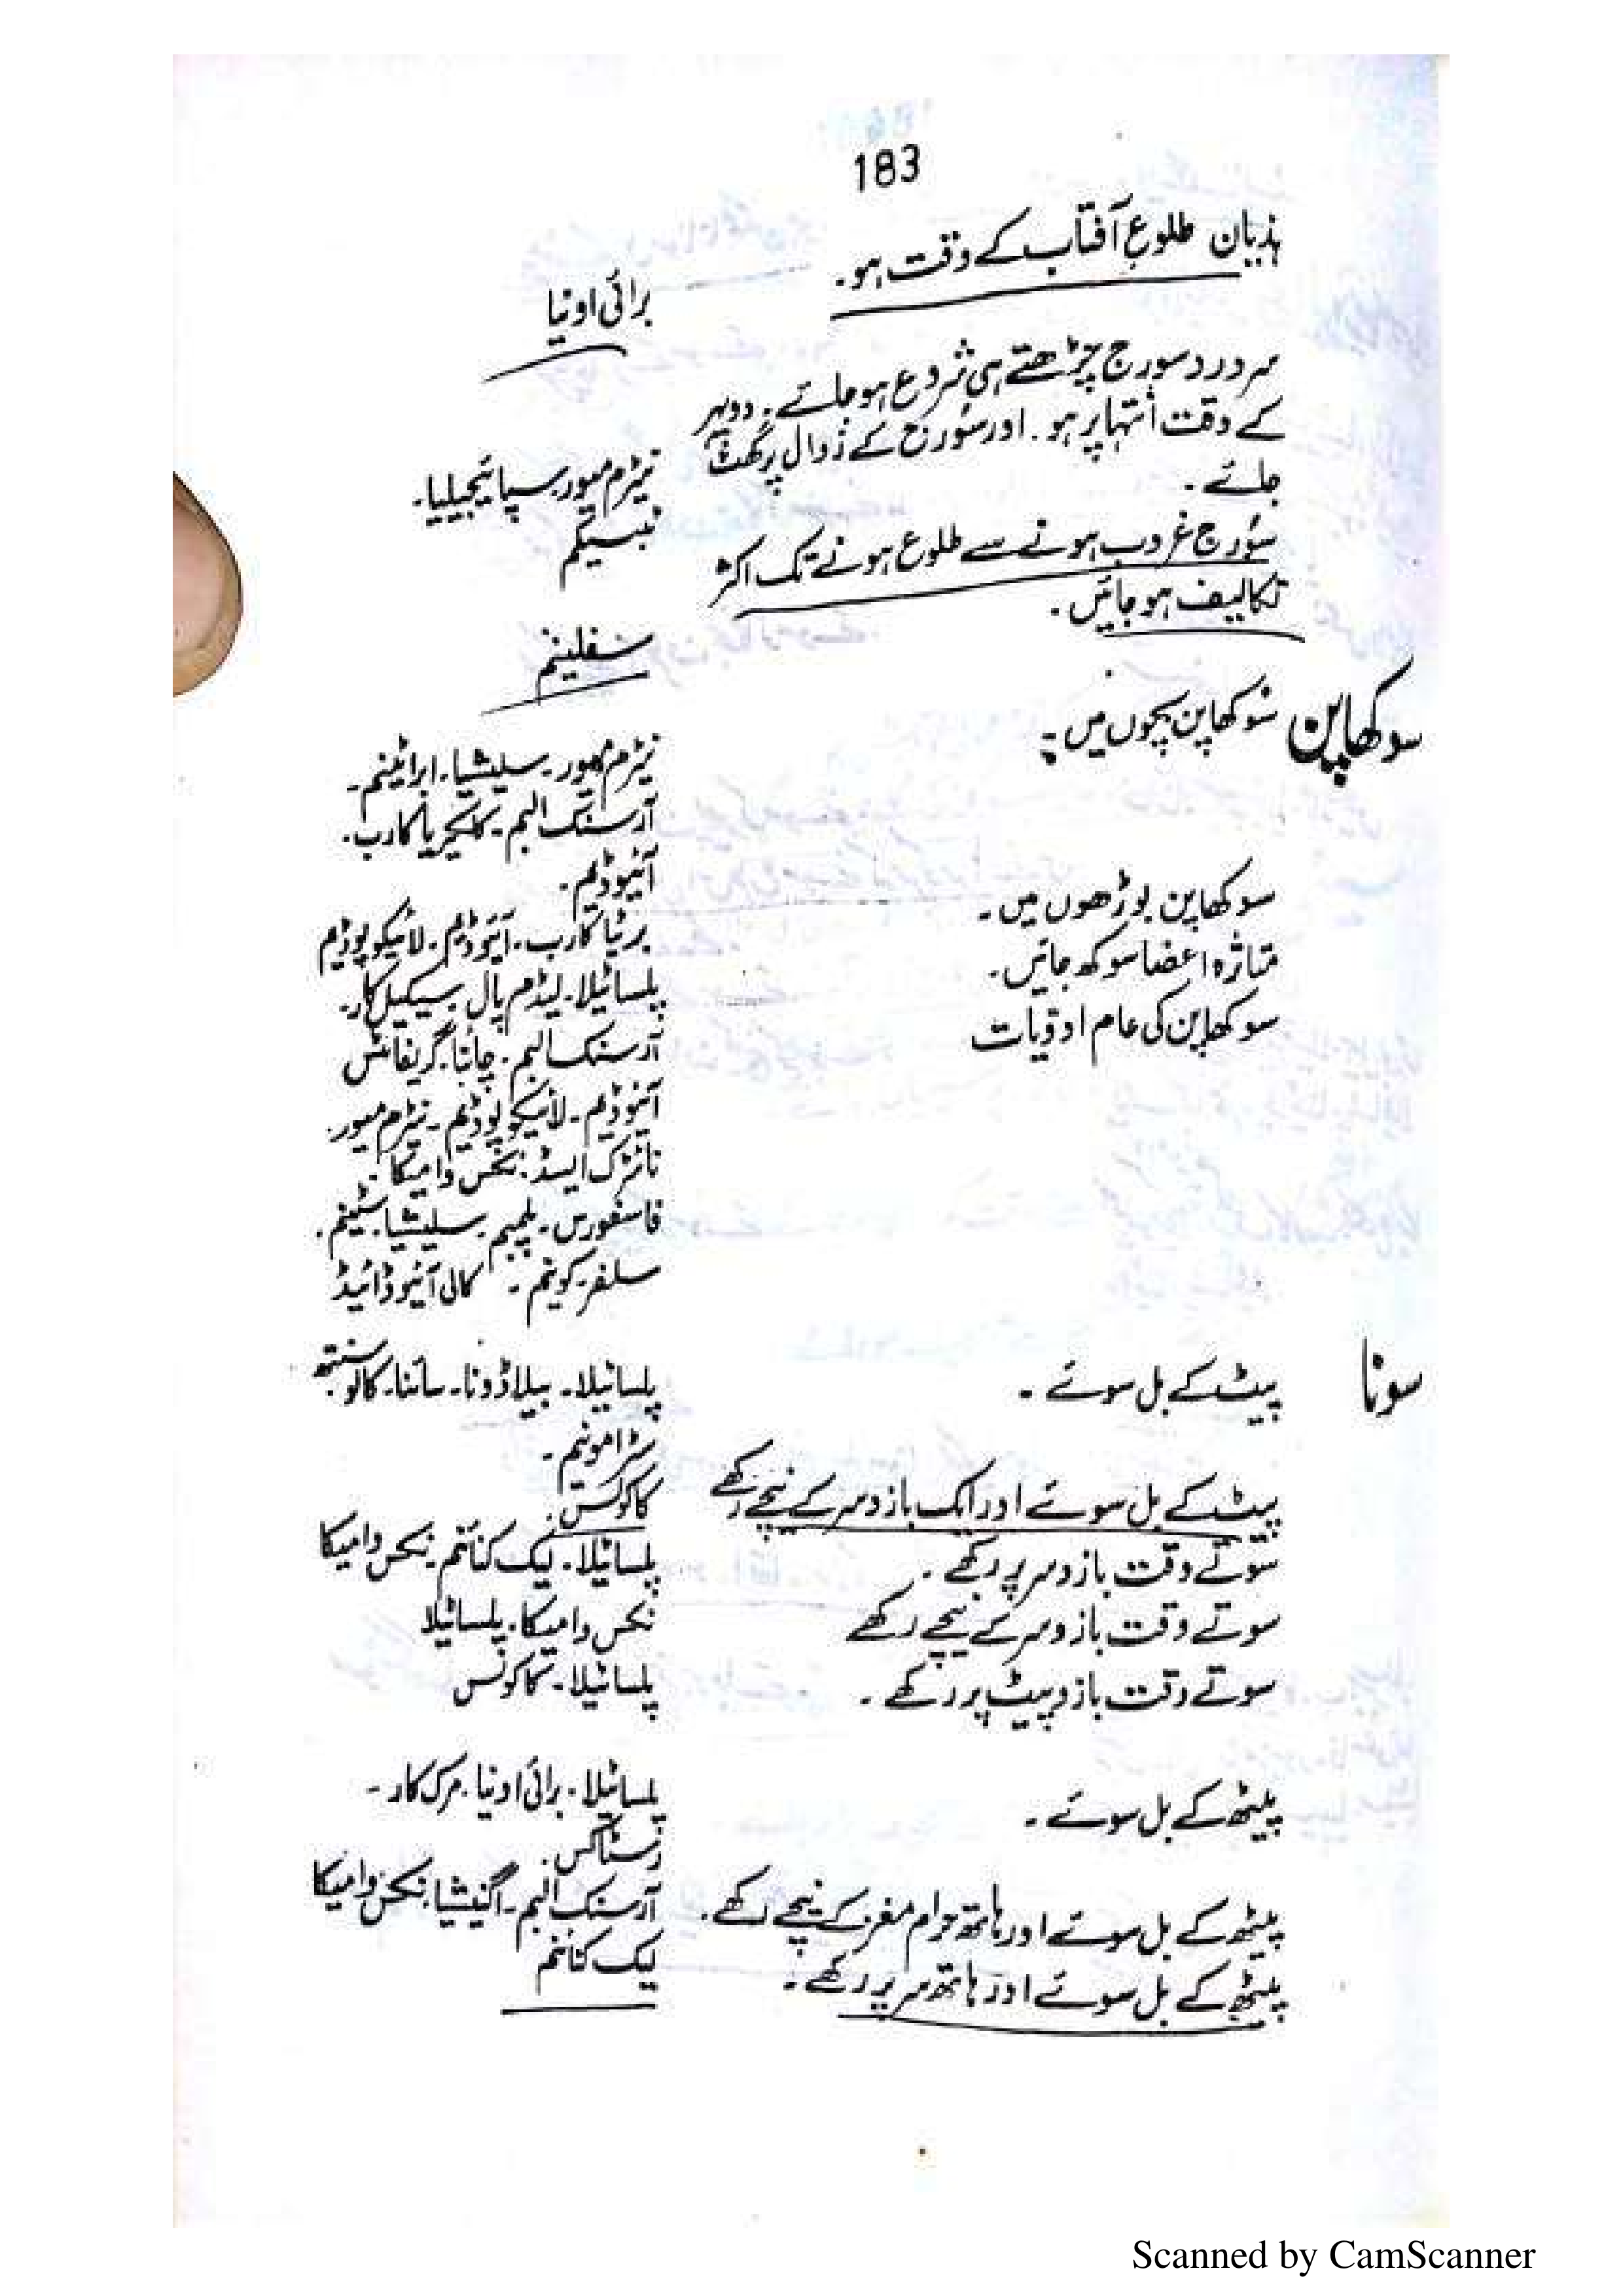 183
ہذیان طلوع آفتاب کے وقت ہو۔
برائی اونیا
سر درد سورج چڑھتے ہی شروع ہو جائے۔ دوپہر
کے وقت انتہا پر ہو۔ اور سورج کے زوال پر گھٹ
جائے۔
نیٹرم میور۔ سپائیجیلیا۔
ٹبیکم
سورج غروب ہونے سے طلوع ہونے تک اکثر
تکالیف ہو جائیں۔
سفلینم
سوکھا پن
سوکھا پن بچوں میں
نیٹرم میور۔ سلیشیا۔ ابراٹینم۔
آرسنک البم۔ کلکیریا کارب۔
آئیوڈیم۔
سوکھا پن بوڑھوں میں۔
برٹیا کارب۔ آئیوڈیم۔ لائیکوپوڈیم
متاثرہ اعضا سوکھ جائیں۔
پلساٹیلا۔ لیڈم پال۔ سیکیل کار۔
سوکھا پن کی عام ادویات
آرسنک البم۔ چائنا۔ گریفائٹس
آئیوڈیم۔ لائیکوپوڈیم۔ نیٹرم میور۔
نائٹرک ایسڈ۔ نکس وامیکا۔
فاسفورس۔ پلمبم۔ سلیشیا۔ سٹینم۔
سلفر۔ کونیم۔ کالی آئیوڈائیڈ
سونا
پیٹ کے بل سوئے۔
پلساٹیلا۔ بیلاڈونا۔ سائنا۔ کالوسنتھ
سٹرامونیم۔
پیٹ کے بل سوئے اور ایک بازو سر کے نیچے رکھے
کاکولس۔
سوتے وقت بازو سر پر رکھے۔
پلساٹیلا۔ لیک کنائنم۔ نکس وامیکا
سوتے وقت بازو سر کے نیچے رکھے
نکس وامیکا۔ پلساٹیلا
سوتے وقت بازو پیٹ پر رکھے۔
پلساٹیلا۔ کاکولس
پیٹھ کے بل سوئے۔
پلساٹیلا۔ برائی اونیا۔ مرک کار۔
رسٹاکس۔
پیٹھ کے بل سوئے اور ہاتھ حرام مغز کے نیچے رکھے۔
آرسنک البم۔ اگنیشیا۔ نکس وامیکا
پیٹھ کے بل سوئے اور ہاتھ سر پر رکھے۔
لیک کنائنم
Scanned by CamScanner